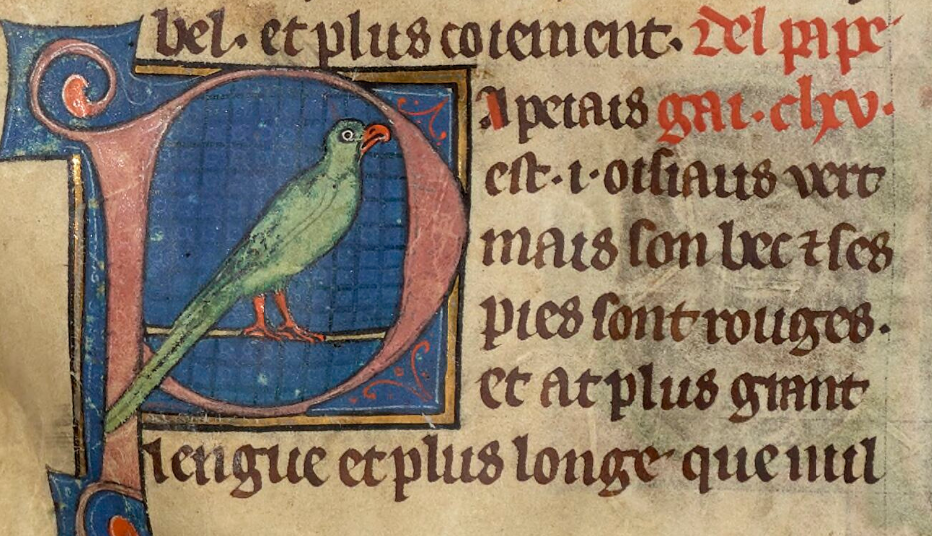 bel. et plus coiement. Del pape
Apetais gai. clxv.
est .i. oisiaus vert
mais son bec ⁊ ses
pies sont rouges.
et at plus grant
lengue et plus longe que nul